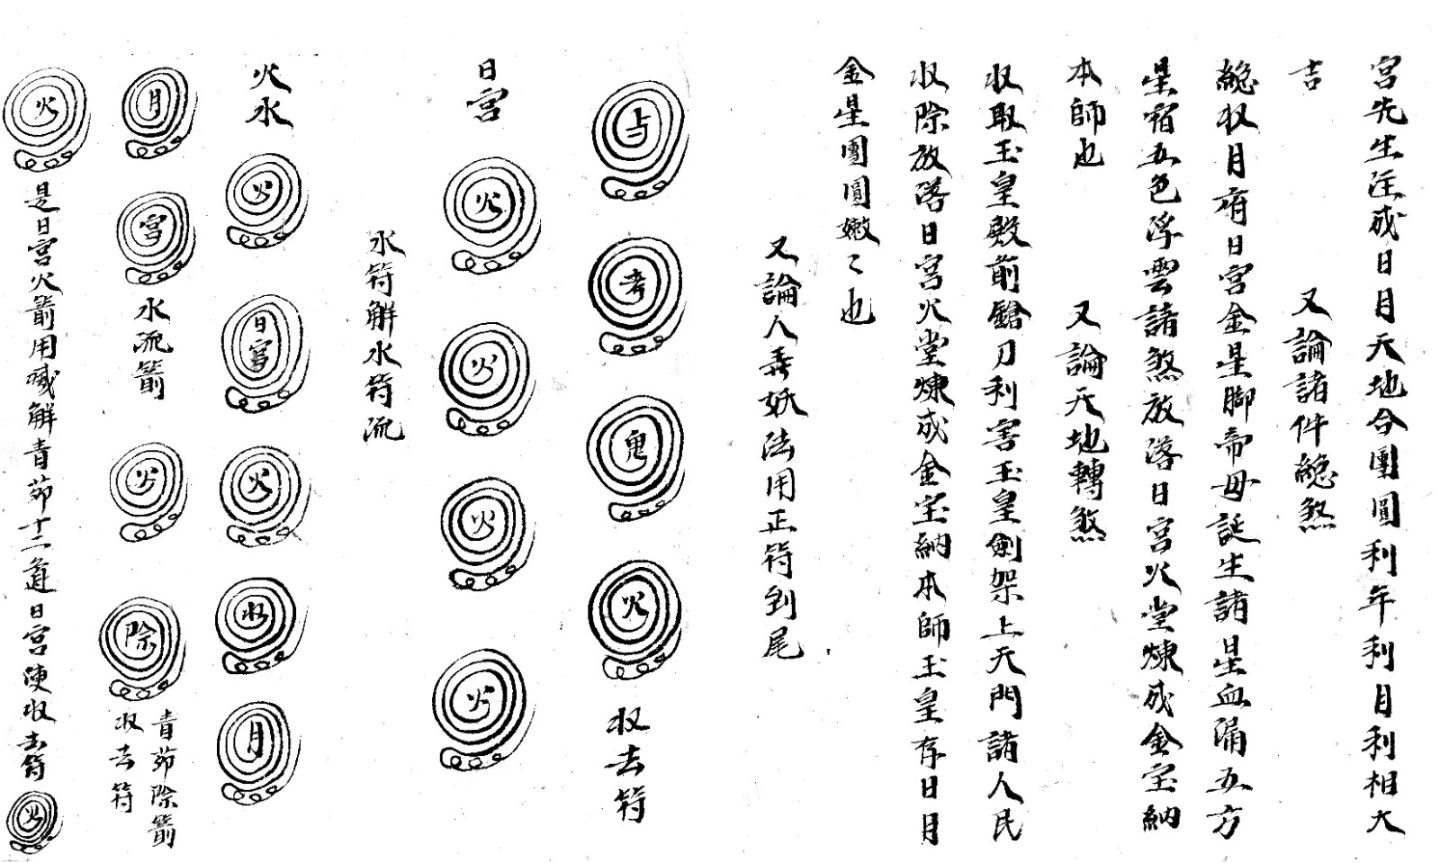 宮先生注成日月天地合團圓利年利月利相大
吉
又論諸件總煞
總収月府日宮金星脚帝母誕生諸星血漏五方
星宿五色浮雲諸煞放落日宮火堂煉成金宝納
本師也
又論天地轉煞
収取玉皇殿前鎗刀利害玉皇劍架上天門諸人民
収除放落日宮火堂煉成金宝納本師玉皇存日月
金星團圓嫩〻也
又論人弄妖法用正符到尾
考
鬼
火
収去符
日宮
火
火
火
火
水符解水符流
火水
火
日宮
火
水
月
月
宮
水流箭
火
除
青茆除箭
収去符
火
是日宮火箭用喊解青茆十二道日宮使収去符
火